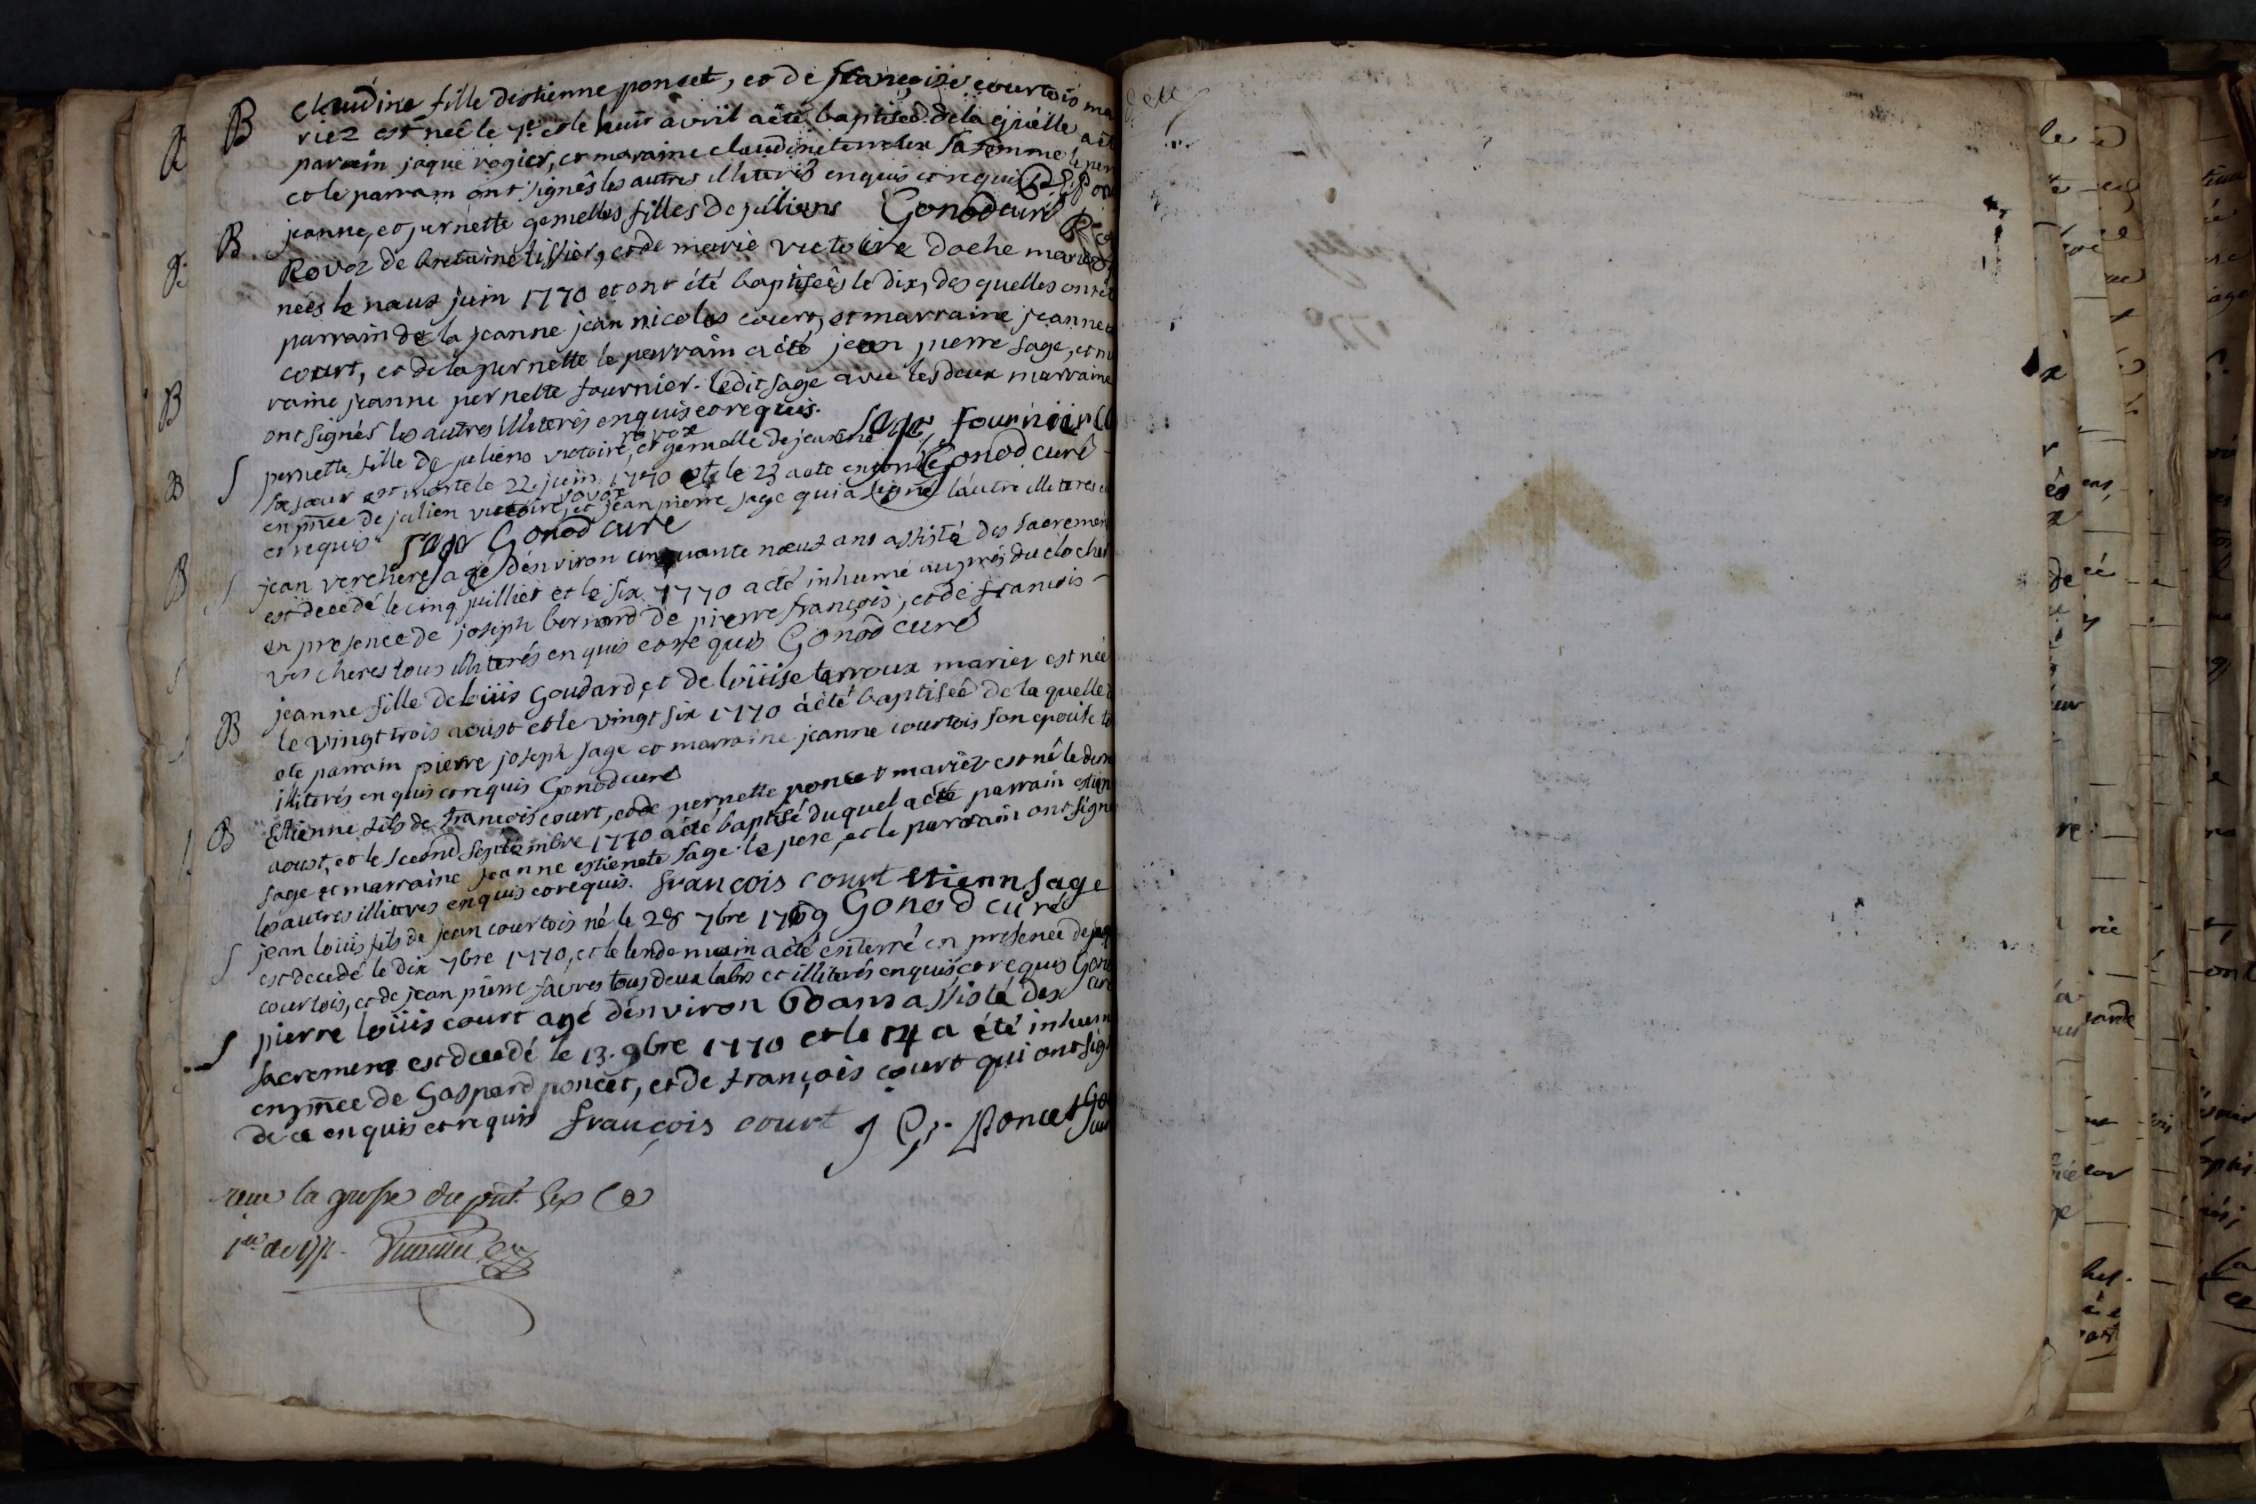 B claudine fille destienne poncet, et de françoise courtois ma
riez est neê le 7e et le huit avriîl a été baptiseé de la quelle a été
parain jaque rogier, et maraine claudine sa femme le pere
et le parrain ont signés les autres illiterés enquis et requis
Gonod curé
B jeanne, et pernette gemelles filles de juliens
Rovox de antoine tissier, et de marie victoire doche mariés
neés le neuf juin 1770 et ont été baptiseês le dix, des quelles ont été
parrain de la jeanne jean nicolas court, et marraine jeanne
court, et de la pernette le parrain a été jean pierre sage, et ma
raine jeanne pernette fournier. ledit sage avec les deux marraine
ont signés les autres illiterés enquis et requis.
sage fournier
Gonod curé
S pernette fille de juliens victoire rovox, et gemelle de jeanne
sa sœur est morte le 22 juin 1770 et le 23 a été enterré
en pnce de julien victoire rovox, et jean pierre sage qui a signé l'autre illiteres
et requis sage Gonod curé
S jean vercheres agé d'environ cinquante neuf ans assisté des sacremen
est decedé le cinq juilliet et le six 1770 a été inhumé auprés du clocher
en presence de joseph bernard de pierre françois, et de francois
vercheres tous illiterés enquis et requis Gonod curé
B jeanne fille de loüis Goudard, et de loüise terroux mariez est neé
le vingt trois aoust et le vingt six 1770 a été baptiseê de la quelle
ete parrain pierre joseph sage et marraine jeanne courtois son epouse
illiterés enquis et requis Gonod curé
B Etienne fils de francois court, et de pernette poncet mariêz est né le dern
aoust, et le second septembre 1770 a été baptisé du quel a été parrain estien
sage et marraine jeanne estienete sage. le pere, et le parrain ont signé
les autres illiteres enquis et requis. françois court etienn sage
Gonod curé
S jean loüis fils de jean courtois né le 28 7bre 1769
est decedé le dix 7bre 1770, et le lendemain a été enterré en presence de
courtois, et de jean pierre favres tous deux labrs et illiterés enquis et requis Gono
curé
S pierre loüis court agé d'environ 60 ans assisté des
sacremens est decedé le 13. 9bre 1770 et le 14 a été inhum
en pnce de Gaspard poncet, et de françois court qui ont sig
de ce enquis et requis françois court J G. Poncet
reçu la grosse du pnt
1771
1770